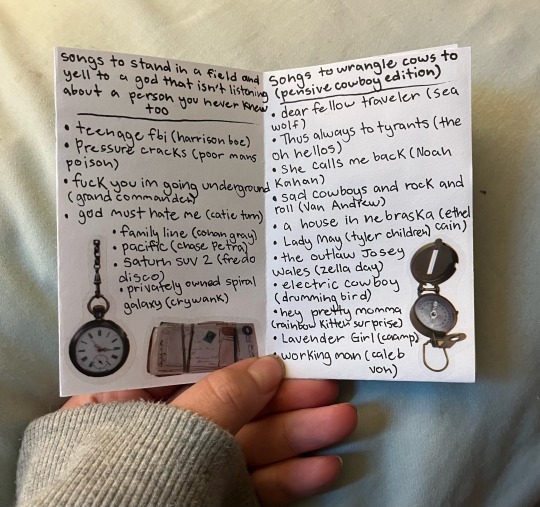 songs to stand in a field and
yell to a god that isn't listening
about a person you never knew
too
• teenage fbi (harrison boe)
• Pressure cracks (poor mans
poison)
• fuck you im going underground
(grand commander)
• god must hate me (catie turn)
• family line (conan gray)
• pacific (chase Petra)
• Saturn SUV 2 (fredo
disco)
• privately owned spiral
galaxy (crywank)
Songs to wrangle cows to
(pensive cowboy edition)
• dear fellow traveler (sea
wolf)
• Thus always to tyrants (the
oh hellos)
• She calls me back (Noah
Kahan)
• sad cowboys and rock and
roll (Van Andrew)
• a house in nebraska (ethel
cain)
• Lady May (tyler childers)
• the outlaw Josey
Wales (zella day)
• electric cowboy
(drumming bird)
• hey pretty momma
(rainbow kitten surprise)
• Lavender Girl (caamp)
• working man (caleb
von)